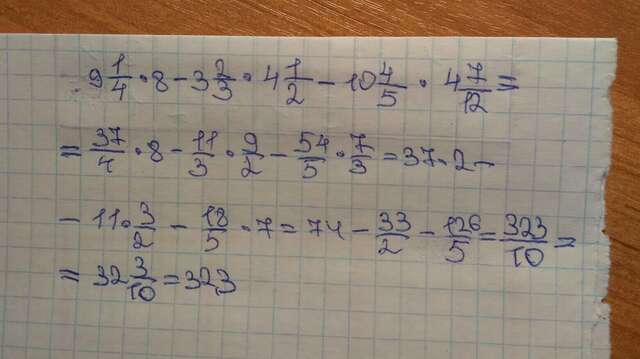 9 1/4 · 8 - 3 2/3 · 4 1/2 - 10 4/5 · 4 7/12 =
= 37/4 · 8 - 11/3 · 9/2 - 54/5 · 7/3 = 37 · 2 -
- 11 · 3/2 - 18/5 · 7 = 74 - 33/2 - 126/5 = 323/10 =
= 32 3/10 = 32,3